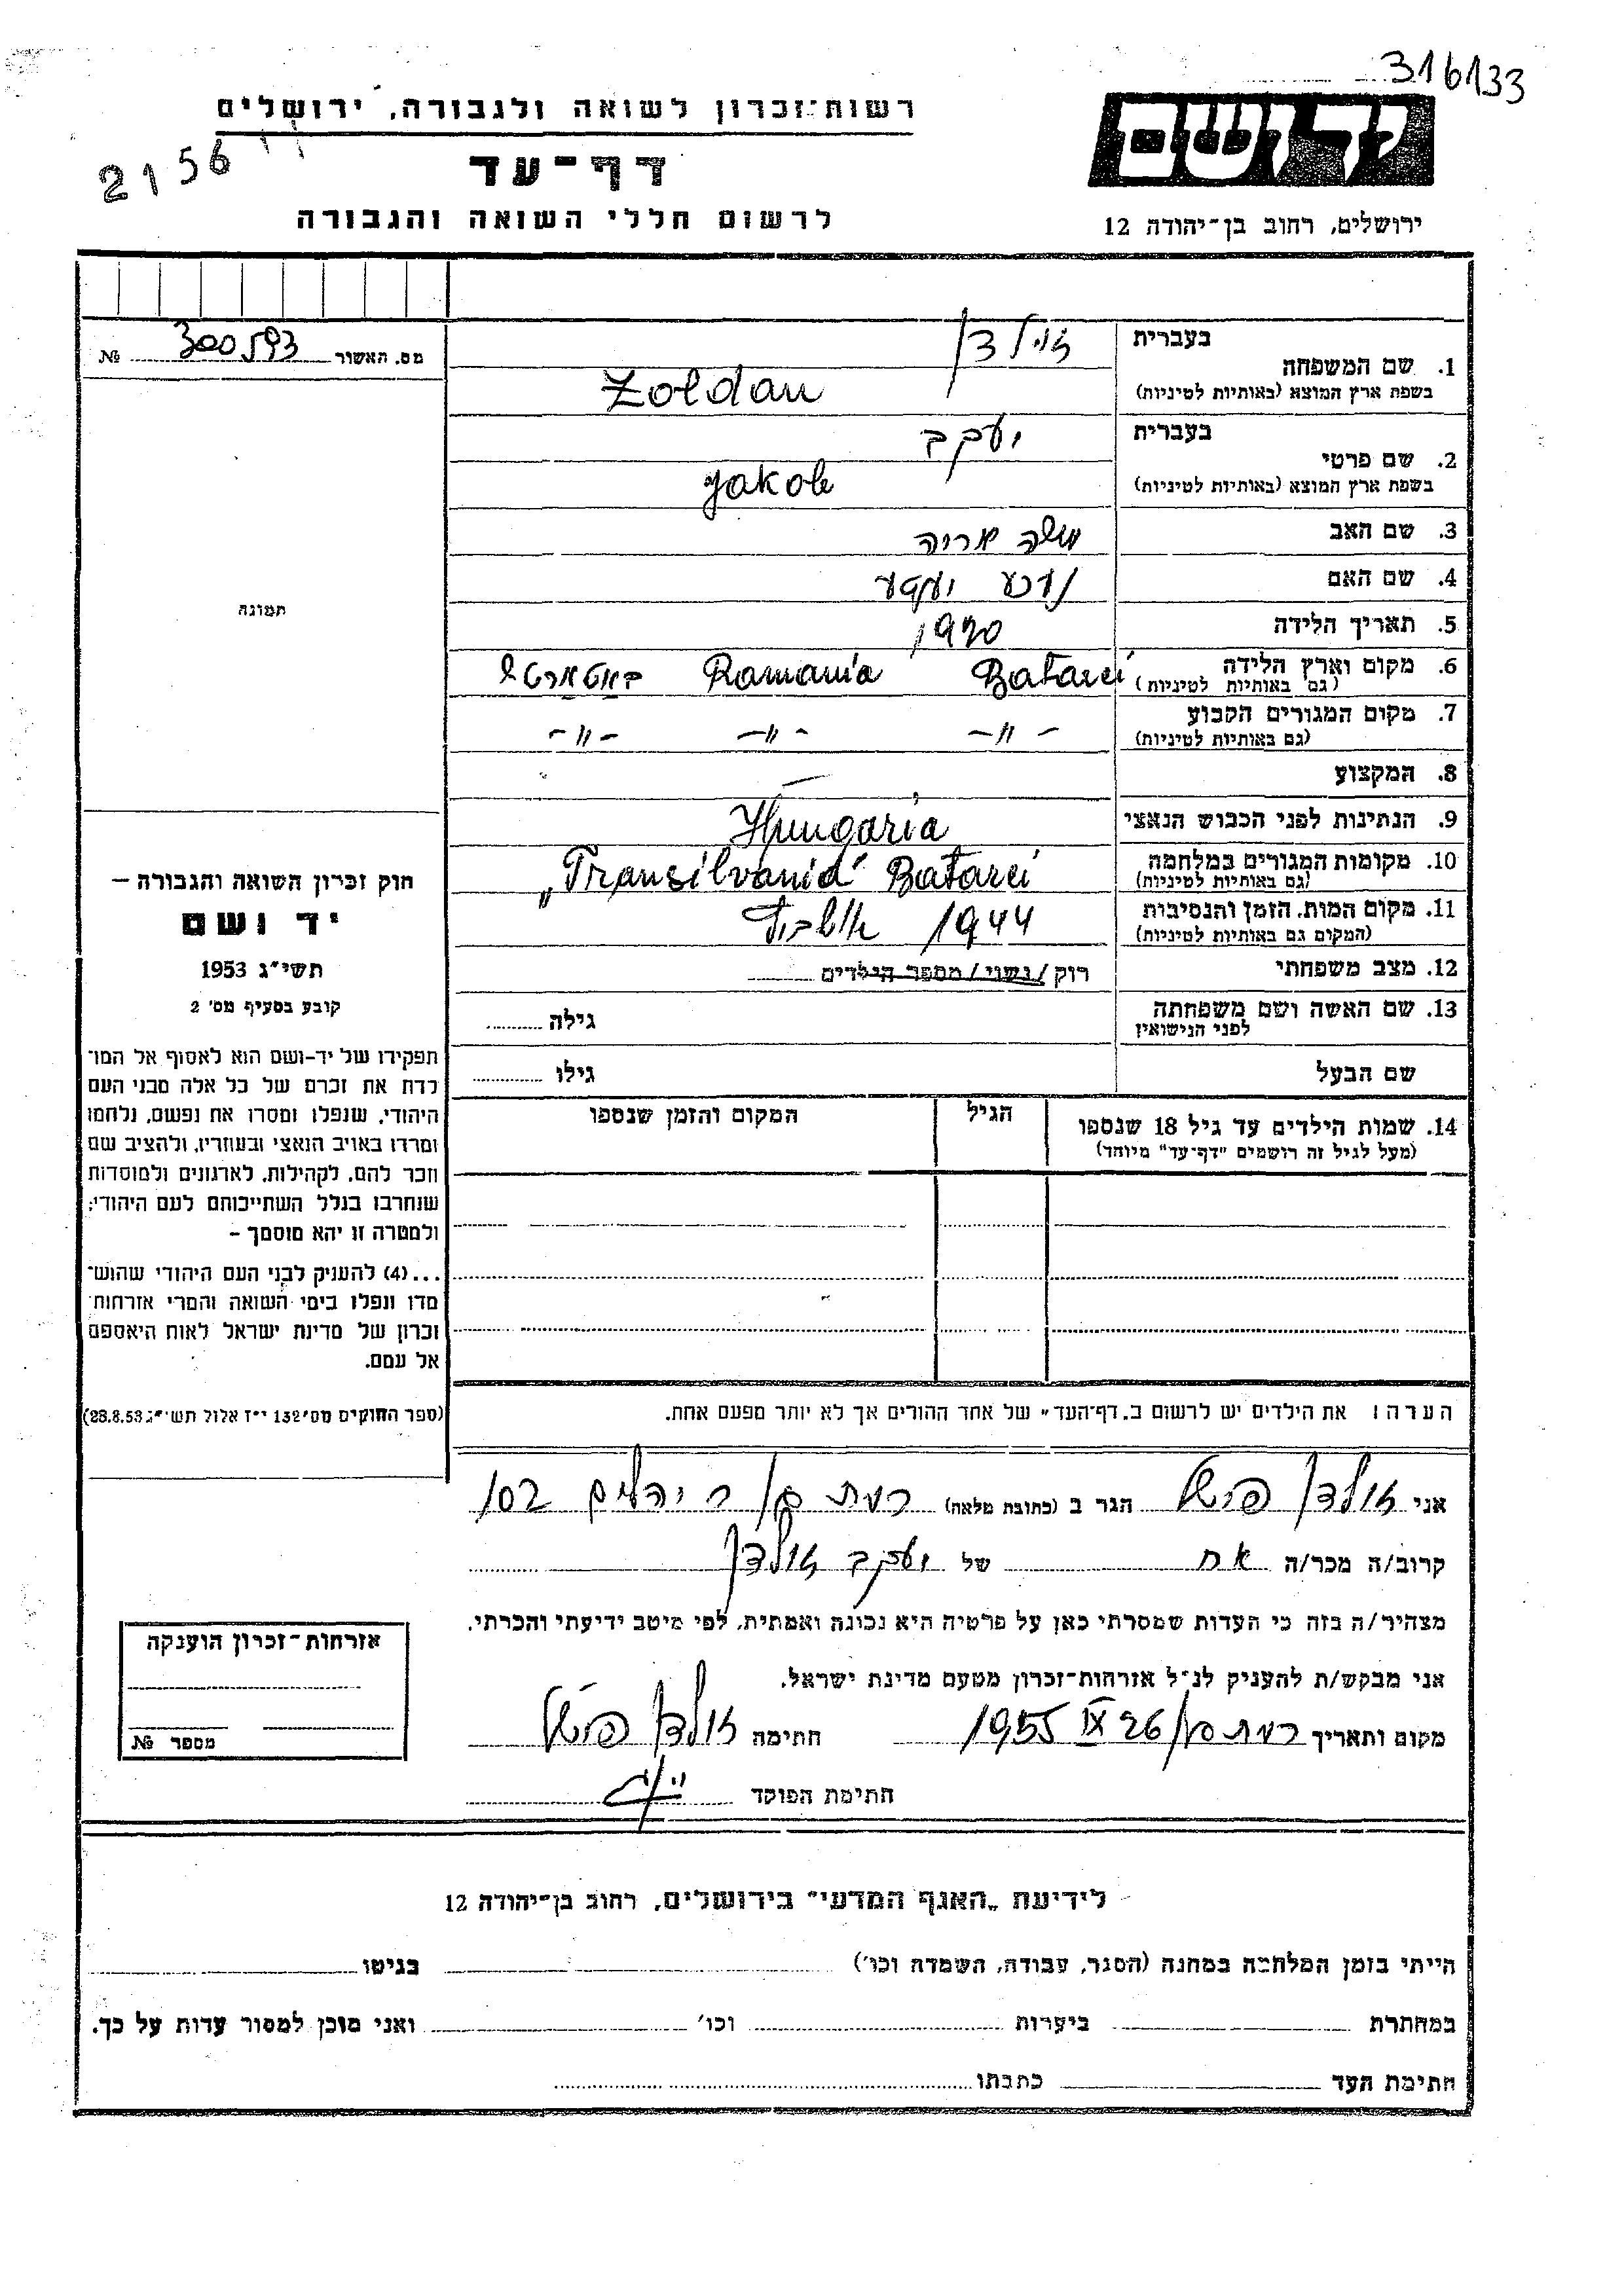 316133
רשות־זכרון לשואה ולגבורה, ירושלים
יד ושם
2156
דף־עד
לרשום חללי השואה והגבורה
ירושלים, רחוב בן־יהודה 12
מס. האשור 300593 №
בעברית
1. שם המשפחה זולדן
בשפת ארץ המוצא (באותיות לטיניות) Zoldan
בעברית
2. שם פרטי יעקב
בשפת ארץ המוצא (באותיות לטיניות) Jakob
3. שם האב משה אריה
4. שם האם
5. תאריך הלידה 1920
6. מקום וארץ הלידה Batarci Romania
(גם באותיות לטיניות)
7. מקום המגורים הקבוע -״- -״- -״-
(גם באותיות לטיניות)
8. המקצוע —
9. הנתינות לפני הכבוש הנאצי Hungaria
10. מקומות המגורים במלחמה „Transilvania" Batarci
(גם באותיות לטיניות)
11. מקום המות, הזמן והנסיבות 1944
(המקום גם באותיות לטיניות)
12. מצב משפחתי רוק / נשוי / מספר הילדים
13. שם האשה ושם משפחתה גילה
לפני הנישואין
שם הבעל גילו
14. שמות הילדים עד גיל 18 שנספו הגיל המקום והזמן שנספו
(מעל לגיל זה רושמים "דף־עד" מיוחד)
תמונה
חוק זכרון השואה והגבורה —
יד ושם
תשי"ג 1953
קובע בסעיף מס' 2
תפקידו של יד-ושם הוא לאסוף אל המו־
לדת את זכרם של כל אלה מבני העם
היהודי, שנפלו ומסרו את נפשם, נלחמו
ומרדו באויב הנאצי ובעוזריו, ולהציב שם
וזכר להם, לקהילות, לארגונים ולמוסדות
שנחרבו בגלל השתייכותם לעם היהודי;
ולמטרה זו יהא מוסמך —
...(4) להעניק לבני העם היהודי שהוש־
מדו ונפלו בימי השואה והמרי אזרחות
זכרון של מדינת ישראל לאות היאספם
אל עמם.
(ספר החוקים מס' 132 י"ז אלול תשי"ג 28.8.53)
הערה: את הילדים יש לרשום ב„דף־העד" של אחד ההורים אך לא יותר מפעם אחת.
אני זולדן הגר ב (כתובת מלאה) רמת גן 102
קרוב/ה מכר/ה אח של יעקב זולדן
מצהיר/ה בזה כי העדות שמסרתי כאן על פרטיה היא נכונה ואמתית, לפי מיטב ידיעתי והכרתי.
אני מבקש/ת להעניק לנ"ל אזרחות־זכרון מטעם מדינת ישראל.
מקום ותאריך רמת גן 26 IX 1955 חתימה זולדן
חתימת הפוקד
אזרחות־זכרון הוענקה
מספר №
לידיעת „האגף המדעי" בירושלים, רחוב בן־יהודה 12
הייתי בזמן המלחמה במחנה (הסגר, עבודה, השמדה וכו') בגיטו
במחתרת ביערות וכו' ואני מוכן למסור עדות על כך.
חתימת העד כתבתו